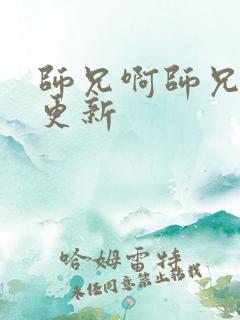 師兄啊師兄
更新
哈姆雷特
未经同意禁止转载